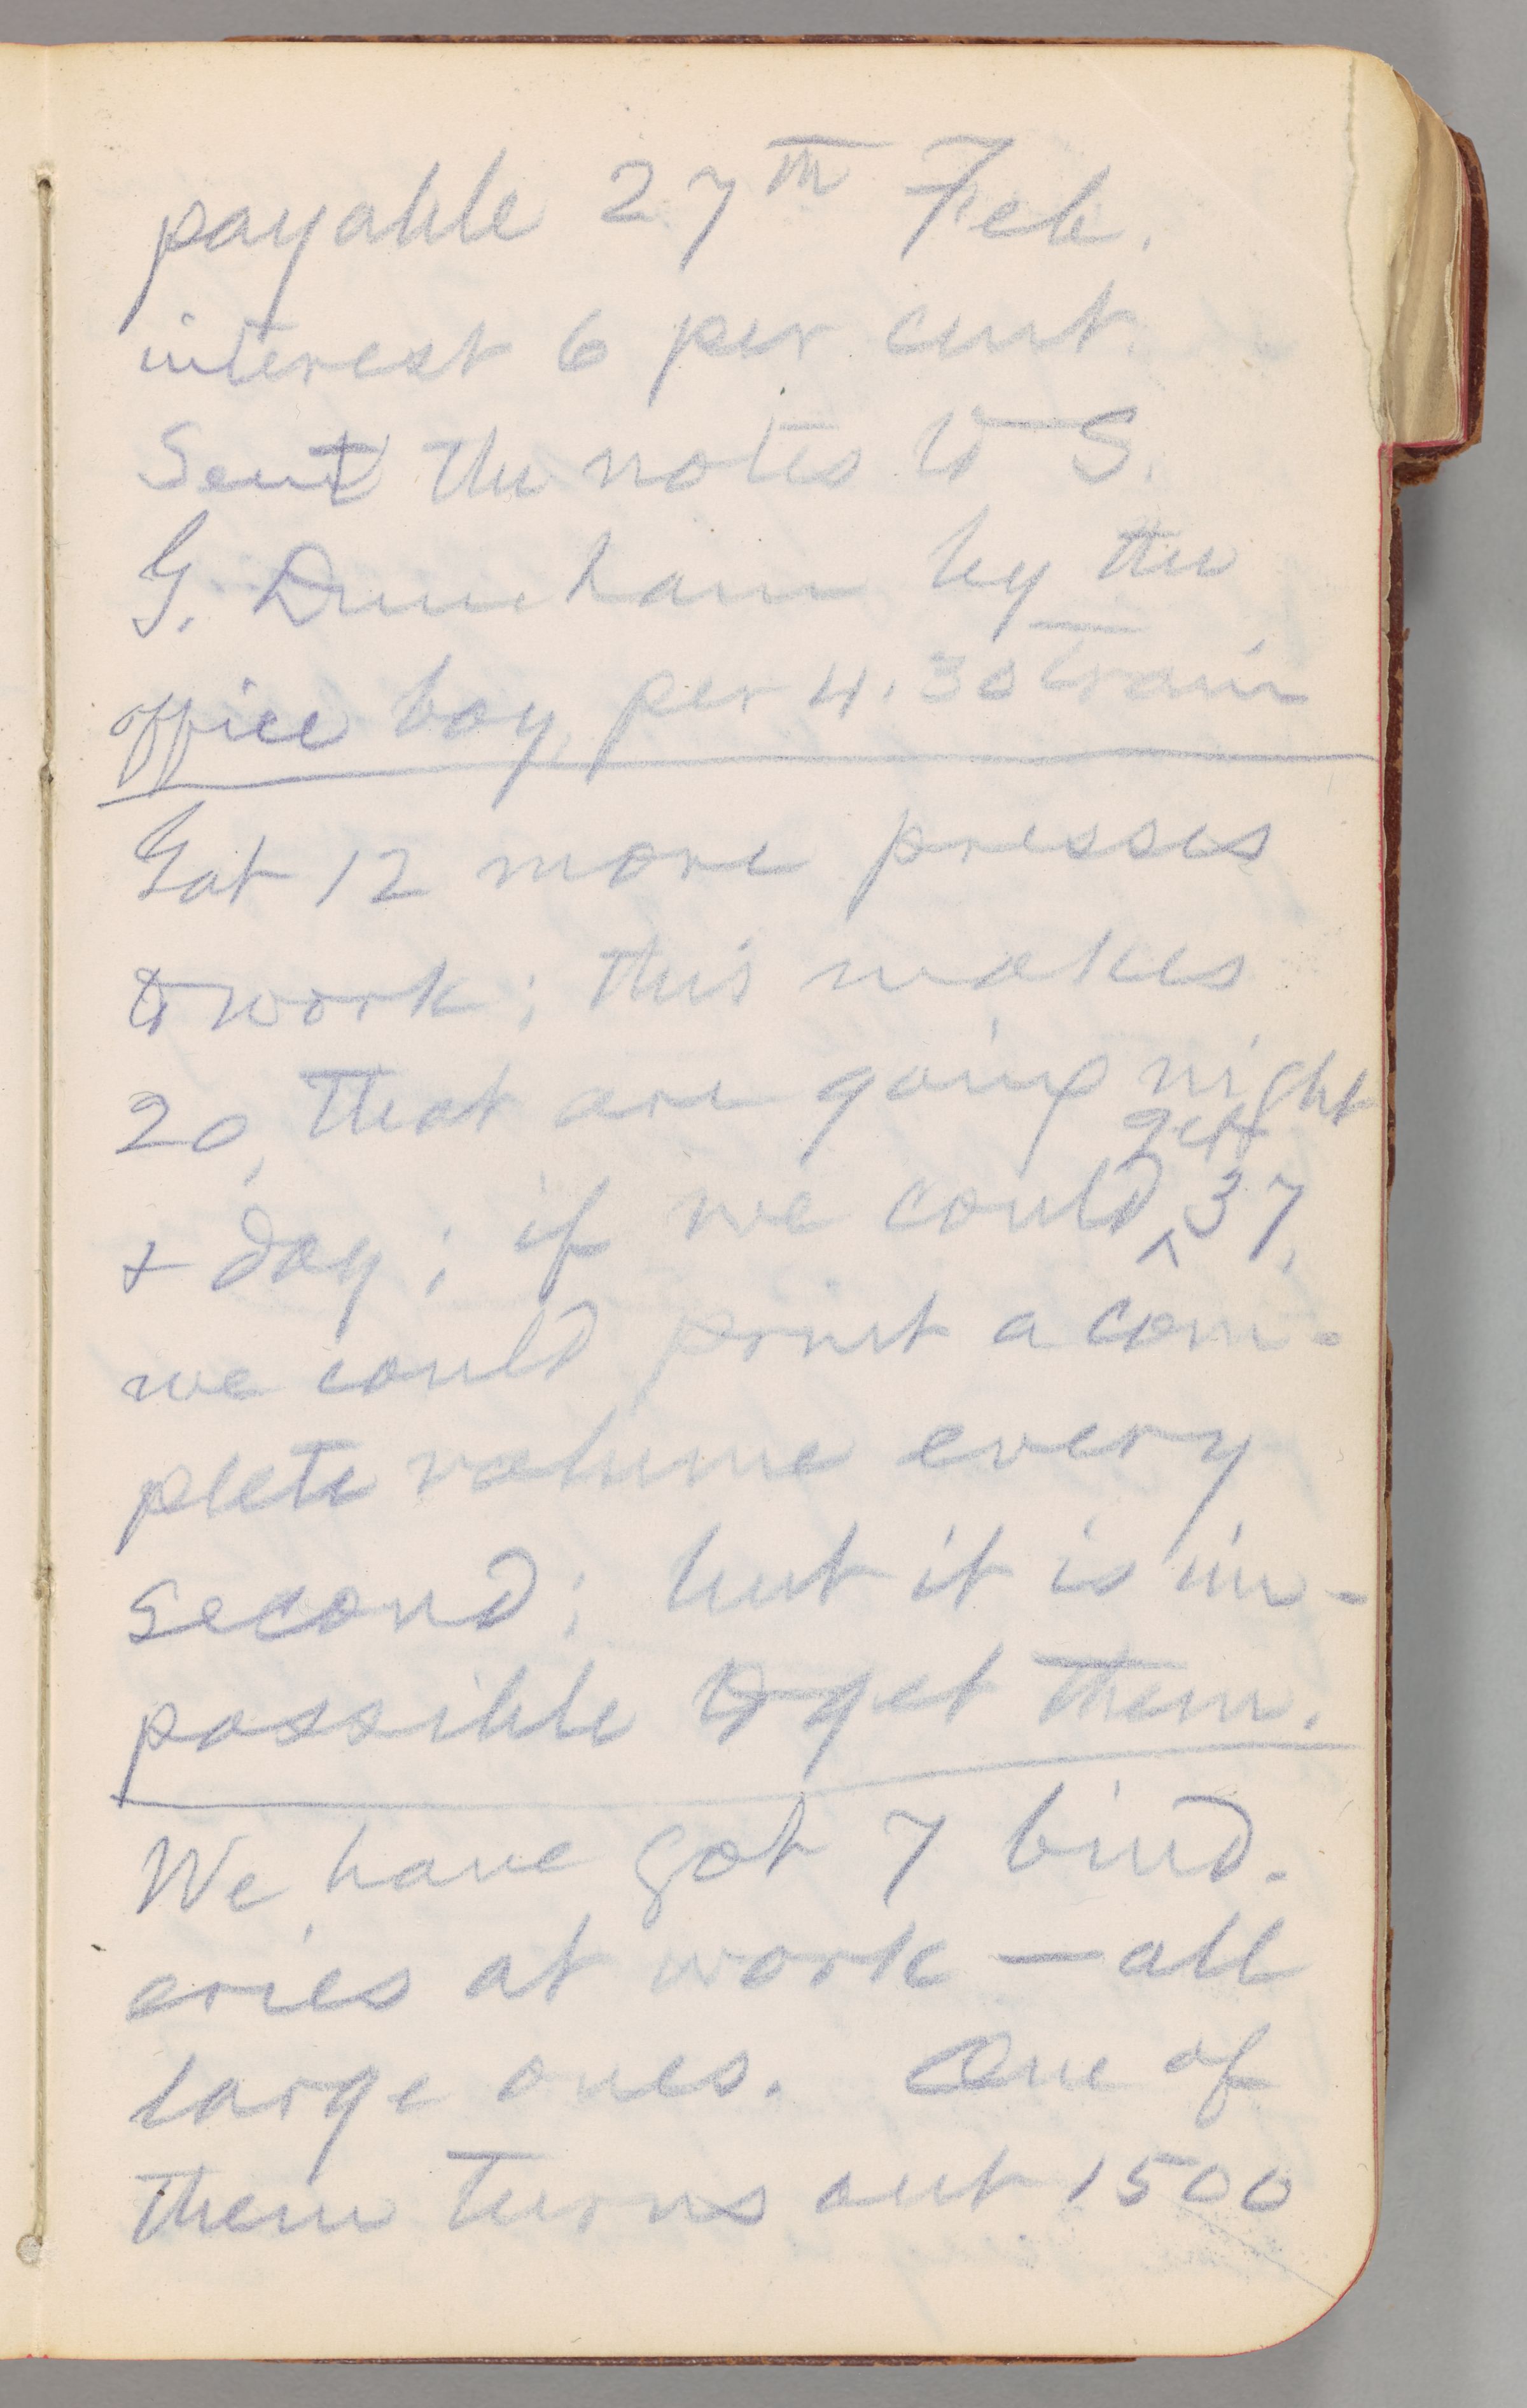 payable 27th Feb.
interest 6 per cent.
Sent the notes to S.
G. Dunham by the
office boy, per 4.30 train
Got 12 more presses
to work; this makes
20, that are going night
+ day; if we could get 37,
we could print a com-
plete volume every
second; but it is im-
possible to get them.
We have got 7 bind-
eries at work — all
large ones. One of
them turns out 1500